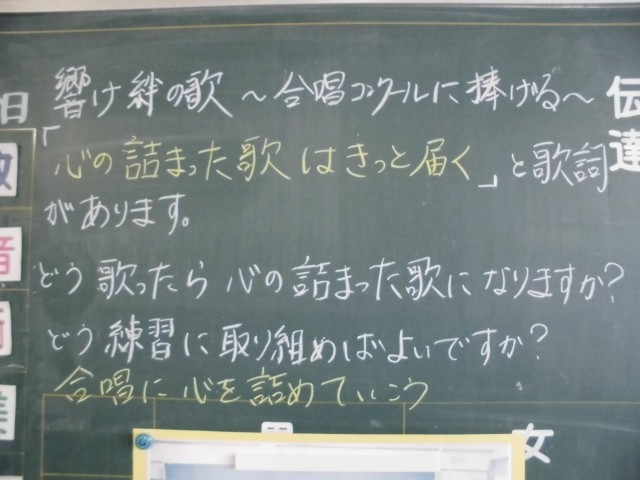 響け絆の歌 ～合唱コンクールに捧げる～
「心の詰まった歌はきっと届く」と歌詞
があります。
どう歌ったら心の詰まった歌になりますか?
どう練習に取り組めばよいですか?
合唱に心を詰めていこう
伝達
音
美
女